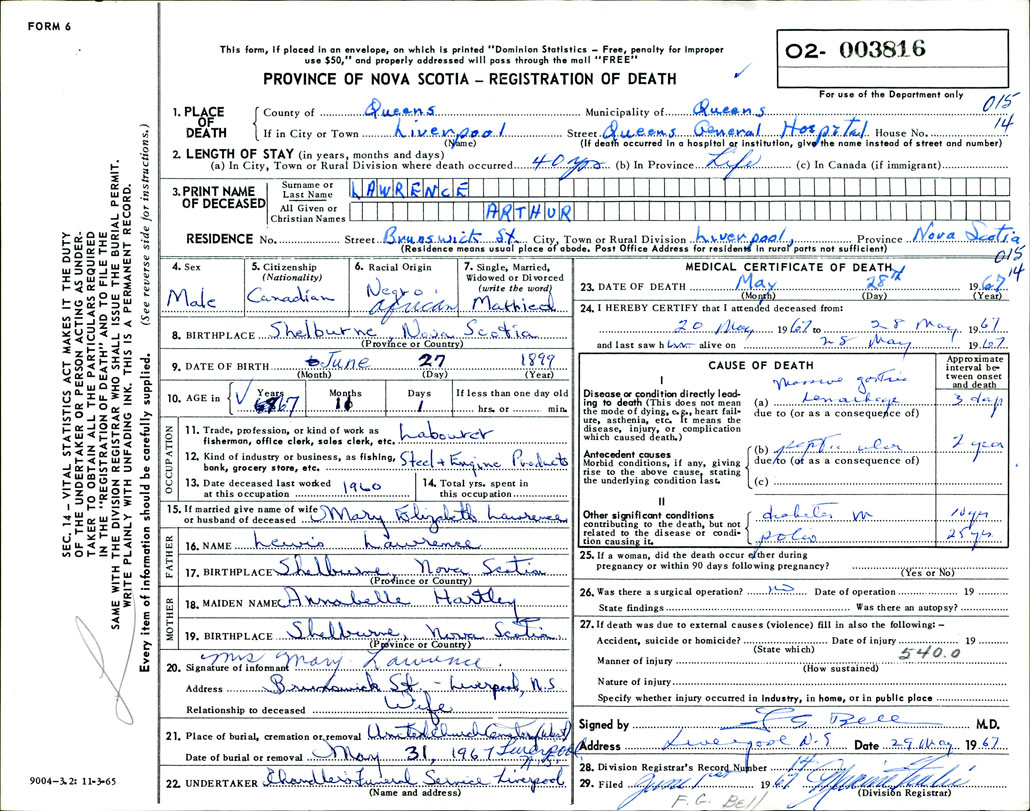 FORM 6
This form, if placed in an envelope, on which is printed "Dominion Statistics – Free, penalty for improper
use $50," and properly addressed will pass through the mail "FREE"
PROVINCE OF NOVA SCOTIA – REGISTRATION OF DEATH
O2- 003816
For use of the Department only
015
14
1. PLACE OF DEATH
County of Queens Municipality of Queens
If in City or Town Liverpool Street Queens General Hospital House No.
(Name) (If death occurred in a hospital or institution, give the name instead of street and number)
2. LENGTH OF STAY (in years, months and days)
(a) In City, Town or Rural Division where death occurred 40 yrs (b) In Province Life (c) In Canada (if immigrant)
3. PRINT NAME OF DECEASED
Surname or Last Name LAWRENCE
All Given or Christian Names ARTHUR
RESIDENCE No. Street Brunswick St. City, Town or Rural Division Liverpool, Province Nova Scotia
(Residence means usual place of abode. Post Office Address for residents in rural parts not sufficient)
015
14
4. Sex
Male
5. Citizenship
(Nationality)
Canadian
6. Racial Origin
Negro
African
7. Single, Married,
Widowed or Divorced
(write the word)
Married
8. BIRTHPLACE Shelburne, Nova Scotia
(Province or Country)
9. DATE OF BIRTH June 27 1899
(Month) (Day) (Year)
10. AGE in
Years
67
Months
10
Days
1
If less than one day old
hrs. or min.
OCCUPATION
11. Trade, profession, or kind of work as
fisherman, office clerk, sales clerk, etc. Labourer
12. Kind of industry or business, as fishing,
bank, grocery store, etc. Steel + Engine Products
13. Date deceased last worked
at this occupation 1960
14. Total yrs. spent in
this occupation
15. If married give name of wife
or husband of deceased Mary Elizabeth Lawrence
FATHER
16. NAME Lewis Lawrence
17. BIRTHPLACE Shelburne, Nova Scotia
(Province or Country)
MOTHER
18. MAIDEN NAME Annabelle Hartley
19. BIRTHPLACE Shelburne, Nova Scotia
(Province or Country)
20. Signature of informant Mrs Mary Lawrence
Address Brunswick St. - Liverpool, N.S
Relationship to deceased Wife
21. Place of burial, cremation or removal United Church Cemetery (West)
Date of burial or removal May 31, 1967 Liverpool
N.S.
22. UNDERTAKER Chandler's Funeral Service Liverpool
(Name and address)
MEDICAL CERTIFICATE OF DEATH
23. DATE OF DEATH May 28th 1967
(Month) (Day) (Year)
24. I HEREBY CERTIFY that I attended deceased from:
20 May 1967 to 28 May 1967
and last saw him alive on 28 May 1967
CAUSE OF DEATH
Approximate
interval be-
tween onset
and death
I
Disease or condition directly lead-
ing to death (This does not mean
the mode of dying, e.g., heart fail-
ure, asthenia, etc. It means the
disease, injury, or complication
which caused death.)
massive gastric
(a) hemorrhage 3 days
due to (or as a consequence of)
Antecedent causes
Morbid conditions, if any, giving
rise to the above cause, stating
the underlying condition last.
(b) peptic ulcer 2 year
due to (or as a consequence of)
(c)
II
Other significant conditions
contributing to the death, but not
related to the disease or condi-
tion causing it.
diabetes m 10 yrs
polio 25 yrs.
25. If a woman, did the death occur during
pregnancy or within 90 days following pregnancy?
(Yes or No)
26. Was there a surgical operation? no Date of operation 19
State findings Was there an autopsy?
27. If death was due to external causes (violence) fill in also the following: –
Accident, suicide or homicide? Date of injury 19
(State which)
540.0
Manner of injury
(How sustained)
Nature of injury
Specify whether injury occurred in industry, in home, or in public place
Signed by F G Bell M.D.
Address Liverpool N.S Date 29 May 1967
28. Division Registrar's Record Number 14
29. Filed June 1st 1967
(Division Registrar)
F. G. Bell
SEC. 14 – VITAL STATISTICS ACT MAKES IT THE DUTY
OF THE UNDERTAKER OR PERSON ACTING AS UNDER-
TAKER TO OBTAIN ALL THE PARTICULARS REQUIRED
IN THE "REGISTRATION OF DEATH" AND TO FILE THE
SAME WITH THE DIVISION REGISTRAR WHO SHALL ISSUE THE BURIAL PERMIT.
WRITE PLAINLY WITH UNFADING INK. THIS IS A PERMANENT RECORD.
Every item of information should be carefully supplied. (See reverse side for instructions.)
9004–3.2: 11-3-65